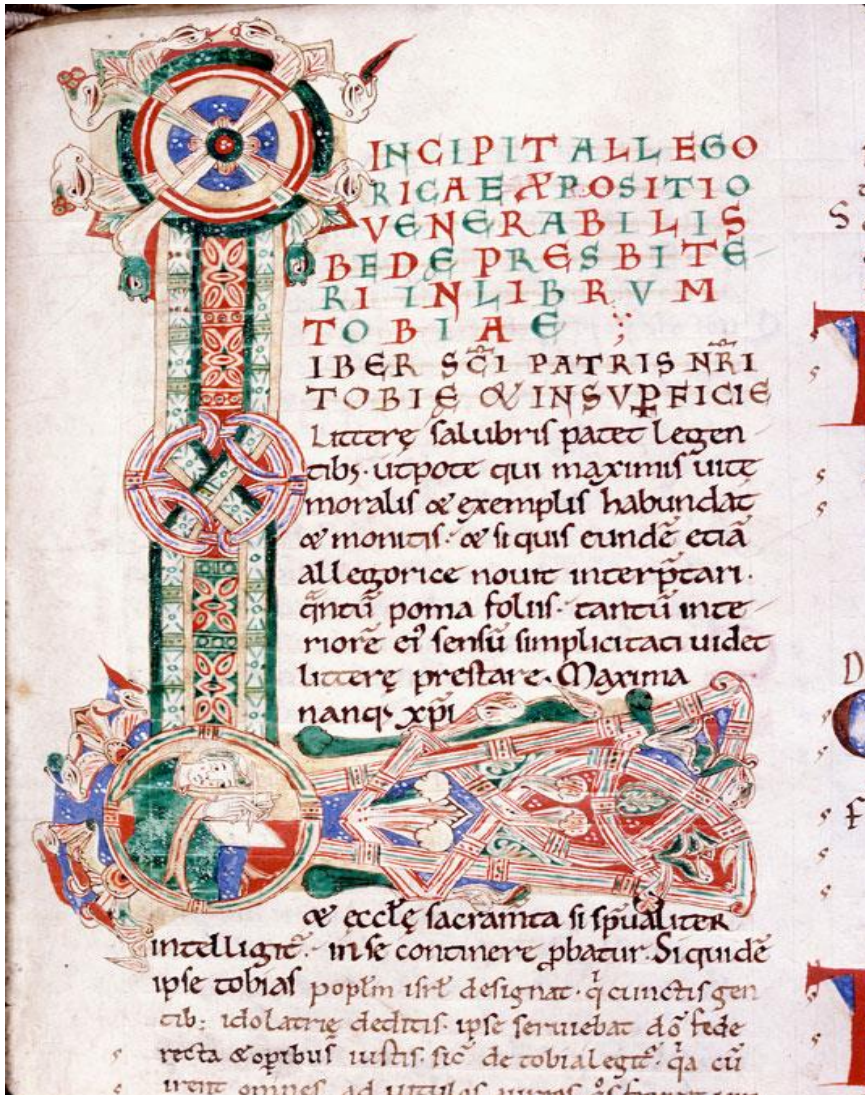 INCIPIT ALLEGO
RICAE EXPOSITIO
VENERABILIS
BEDE PRESBITE-
RI IN LIBRVM
TOBIAE
LIBER SC̄I PATRIS NR̄I
TOBIĘ & IN SVꝑFICIE
Litterę salubris patet legen-
tibꝫ· utpote qui maximis uitę
moralis & exemplis habundat
& monitis· & si quis eundē etiā
allegorice nouit interp̄tari·
q̄ntū poma foliis· tantū inte-
riorē ei᾽ sensū simplicitati uidet
litterę prestare· Maxima
nanqꝫ xp̄i
& eccłę sacram̄ta si sp̄ualiter
intelligit̄· in se continere ꝓbatur· Si quidē
ipse tobias popłm isrł designat· q̇ cunctis gen
tib: idolatrię deditis· ipse seruiebat dō fide
recta & oꝑibus iustis· sic̄ de tobia legit̄· q̇a cū
irent omnes ad uitulos aureos
S
D
F